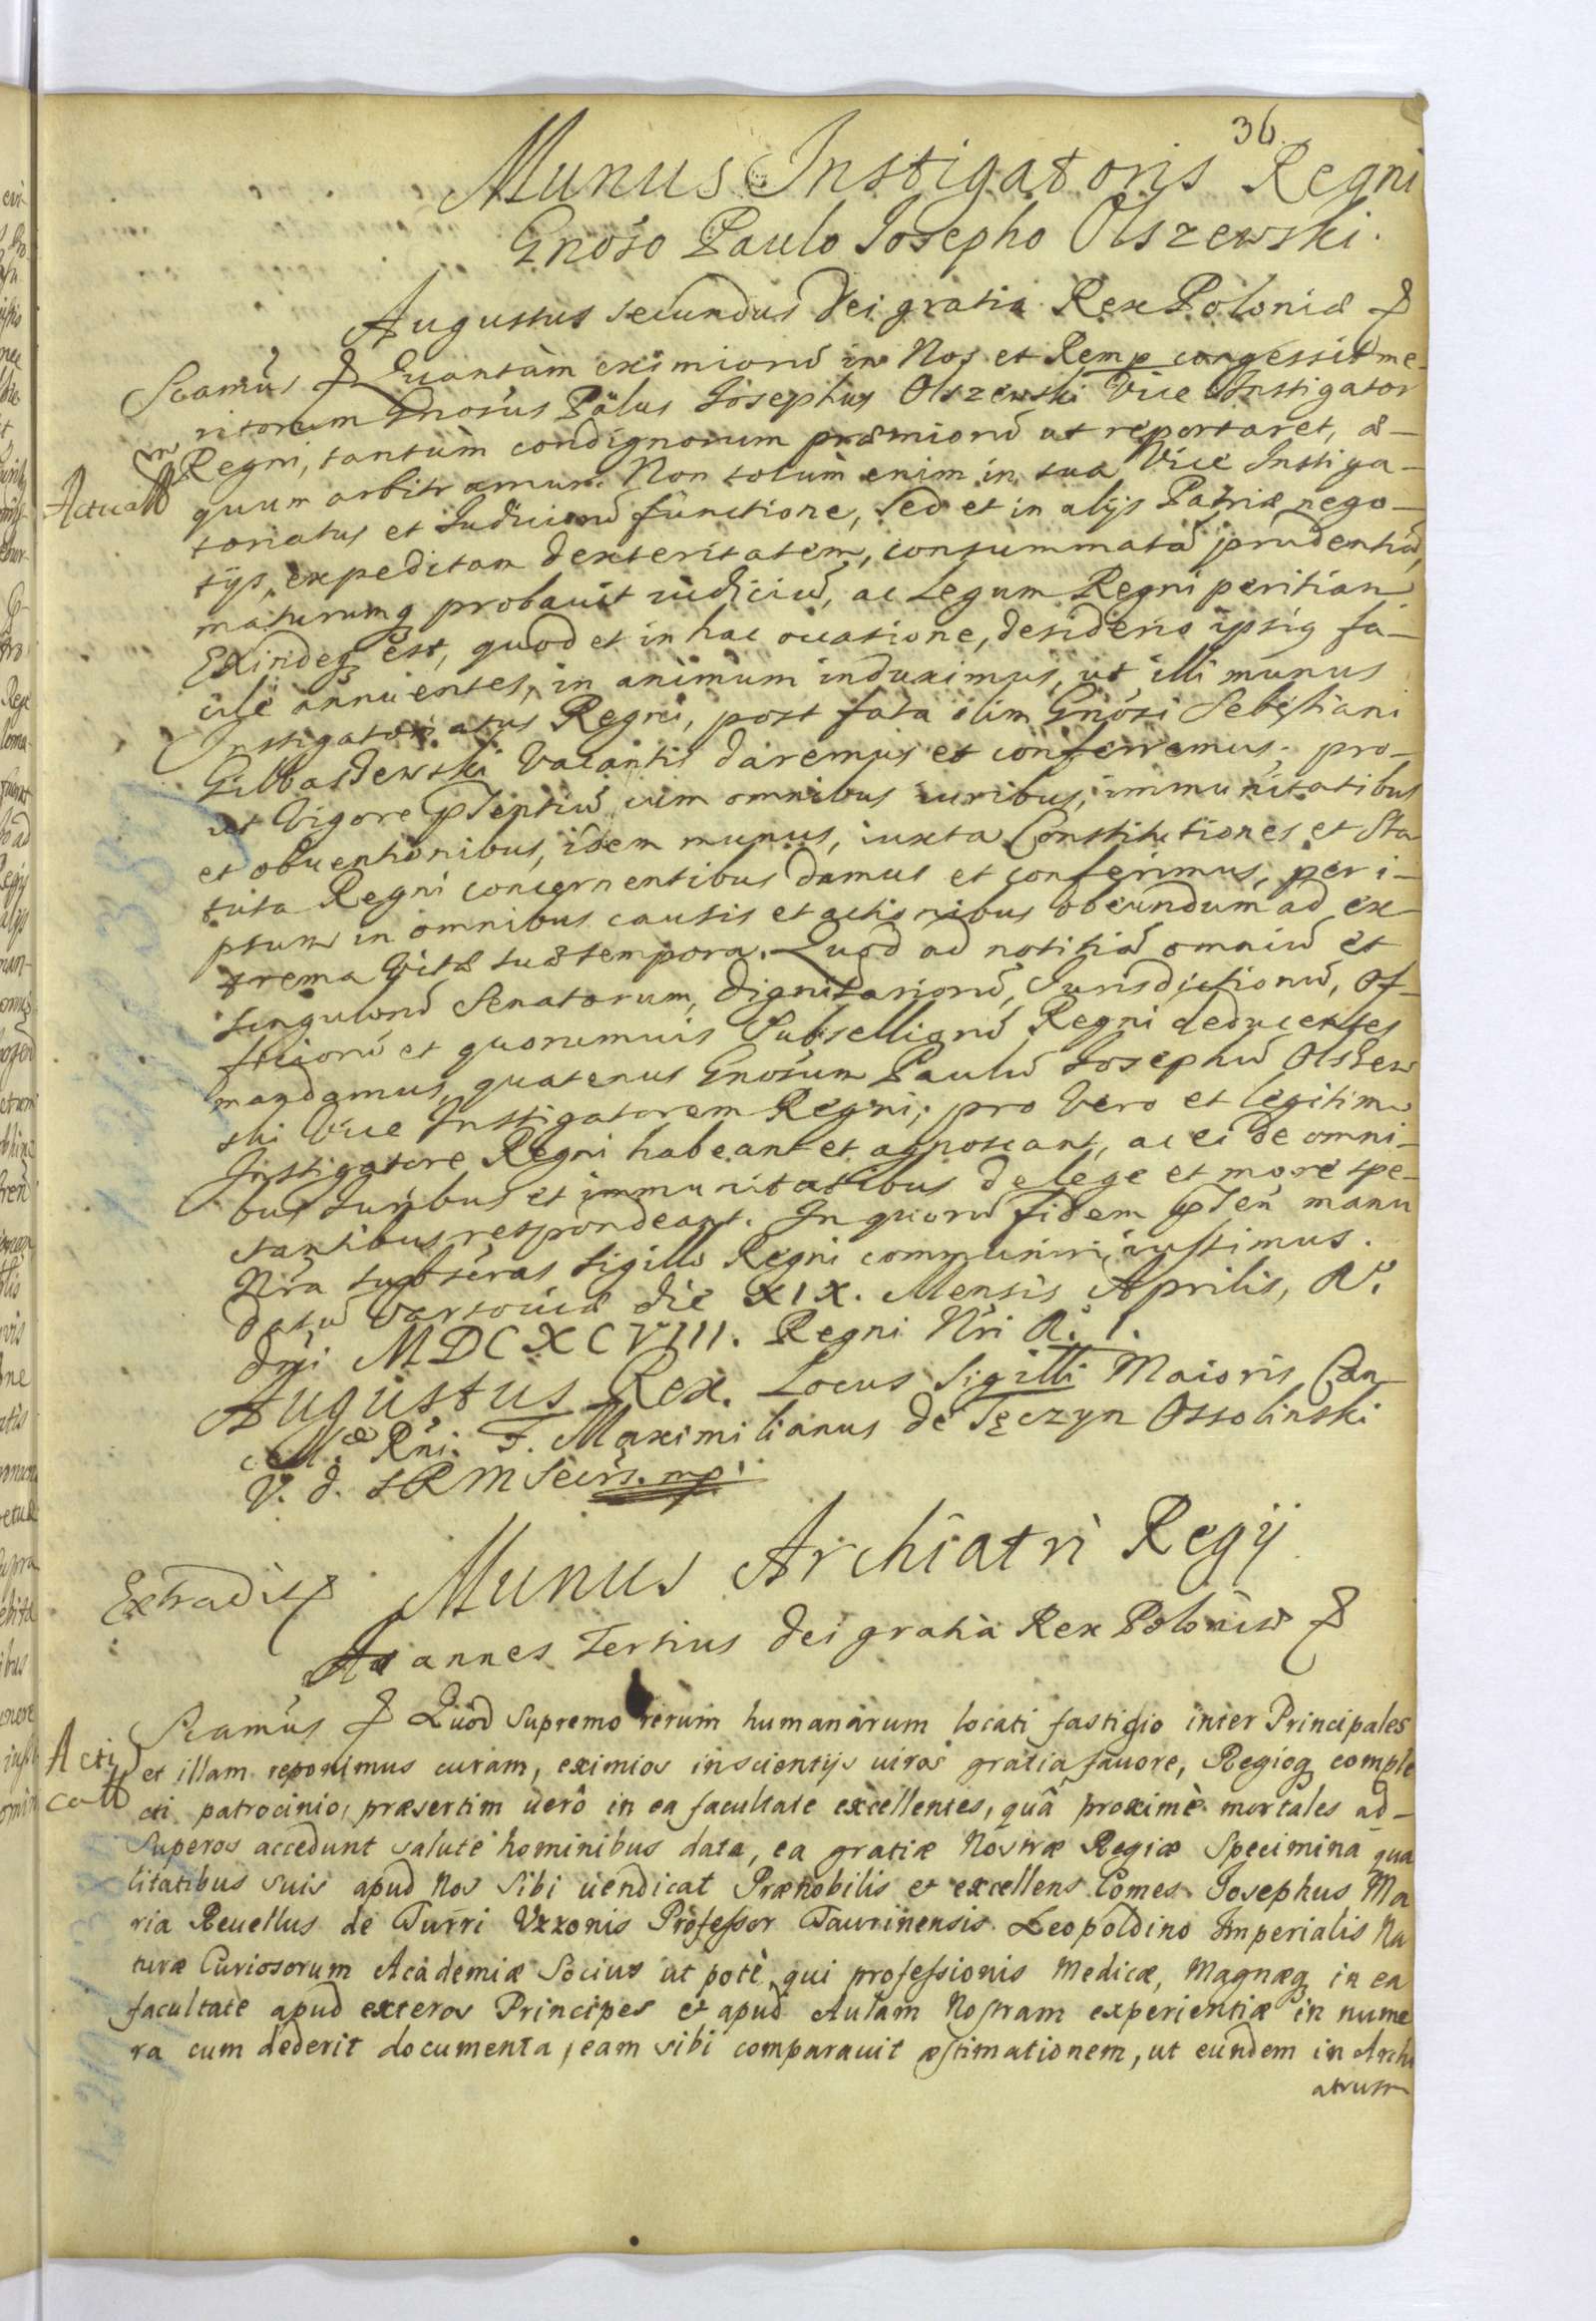 36.
Munus Instigatoris Regni
Gnoso Paulo Josepho Olszewski.
Augustus secundus Dei gratia Rex Poloniæ
Stamus Quantum eximiorũ in Nos et Remp congessit me-
ritorum Gnosus Palus Josephus Olszewski Vice Instigator
Regni, tantum condignorum præmiorũ ut reportaret, æ-
quum arbitramur. Non solum enim in sua Vice Instiga-
toriatus et Judiciorũ functione, sed et in alijs Patriæ nego-
tijs, expeditam dexteritatem, consummatã prudentiã,
maturumq probauit iudiciũ, ac Legum Regni peritiam.
Exindeq est, quod et in hac occasione, desiderio ipsiq fa-
cile annuentes, in animum induximus, ut illi munus
Instigatoriatus Regni, post fata olim Gnosi Sebestiani
Vacantis daremus et conferremus; pro-
ut Vigore pntiũ cum omnibus iuribus, immunitatibus
et obuentionibus, idem munus, iuxta Constitutiones et Sta
tuta Regni concernentibus damus et conferimus, per i-
psum in omnibus causis et actionibus obeundum ad ex-
trema Vitæ suæ tempora. Quod ad notitiã omniũ et
singulorũ Senatorum, Dignitariorũ, Jurisdictionũ, Of-
ficiorũ et quorumuis Subselliorũ Regni deducentes
mandamus, quatenus Gnosum Paulũ Josephũ Olszew
ski Vice Instigatorem Regni; pro Vero et legitimo
Instigatore Regni habeant et agnoscant, ac ei de omni-
bus Juribus et immunitatibus de lege et more spe-
ctantibus respondeant. In quorũ fidem pnten manu
Nra subscras sigillo Regni communiri iussimus.
Datũ Varsouiæ die XIX. Mensis Aprilis, A°.
Dni MDCXCVIII. Regni Nri A°. 1.
Augustus Rex. Locus Sigilli Maioris Can-
cell.æ Rni. F. Maximilianus de Tęczyn Ossolinski
V. d. SRM Secrs. mp.
Munus Archiatri Regij
Extradit
Joannes Tertius Dei gratia Rex Poloniæ
Stamus Quod Supremo rerum humanarum locati fastigio inter Principales
et illam reponimus curam, eximios in scientijs uiros gratia fauore, Regioq comple
cti patrocinio, præsertim uerô in ea facultate excellentes, quâ proximè mortales ad-
Superos accedunt salute hominibus data, ea gratiæ Nostræ Regiæ Specimina qua
litatibus suis apud Nos Sibi uendicat Prænobilis et excellens Comes Josephus Ma
ria Reuellus de Turri Vxxonis Professor Taurinensis Leopoldino Imperialis Na
turæ Curiosorum Academiæ Socius ut potè, qui professionis Medicæ, Magnæq in ea
facultate apud exteros Principes et apud Aulam Nostram experientiæ in nume
ra cum dederit documenta, eam sibi comparauit æstimationem, ut eundem in Archi
atrum